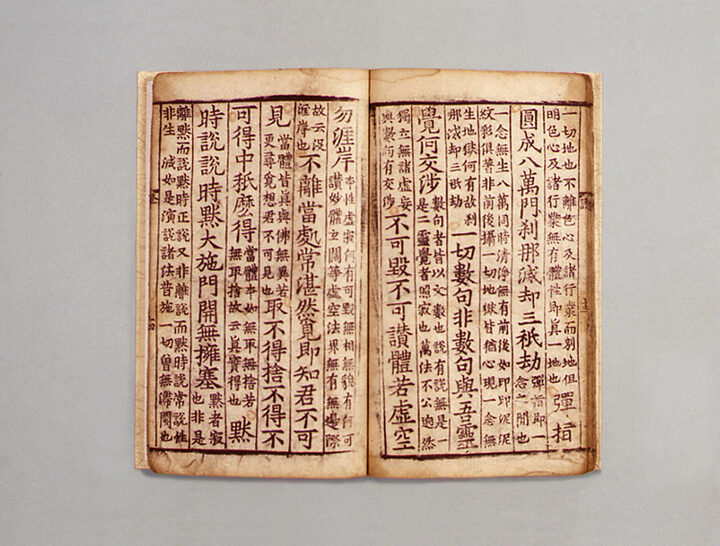 一切地也不離色心及諸行業而別地但
明色心及諸行業無有體性即真一地也
彈指
圓成八萬門刹那滅却三祇劫
彈指即一
念之間也
一念無生八萬同時清淨無有前後如印印泥泥
文彩俱著非前後攝一切地獄皆猶心現一念無
生地獄何有故刹
那滅却三祇劫
一切數句非數句與吾靈
覺何交涉
數句者皆以文數也說有說無是一
是二靈覺者照寂也萬法不公逈然
獨立無諸虛妄
與數句有交涉
不可毀不可讃體若虛空
勿涯岸
本性虛寂何有可毀無相無貌有何可
讃妙體立闊等虛空法界無有無邊際
故云沒
涯岸也
不離當處常湛然覓即知君不可
見
當體皆真與佛無異若
更尋覓想君不可見也
取不得捨不得不
可得中秖麽得
當體本如無取無捨若
無取捨故云真實得也
默
時說說時默大施門開無擁塞
默者寂
也非是
離默而說默時正說又非離說而默時說常說惟
非生滅如是演說諸法普施一切曾無滯閡也